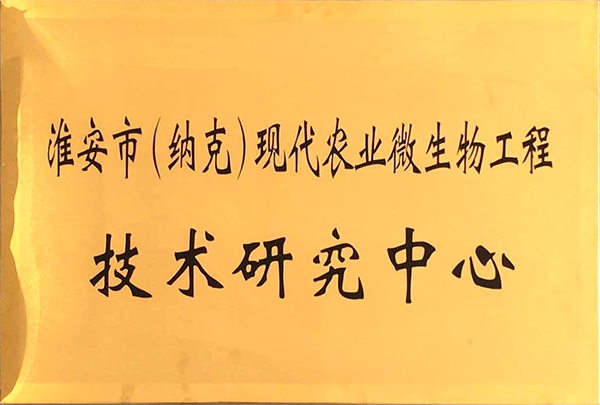 淮安市(纳克)现代农业微生物工程
技术研究中心